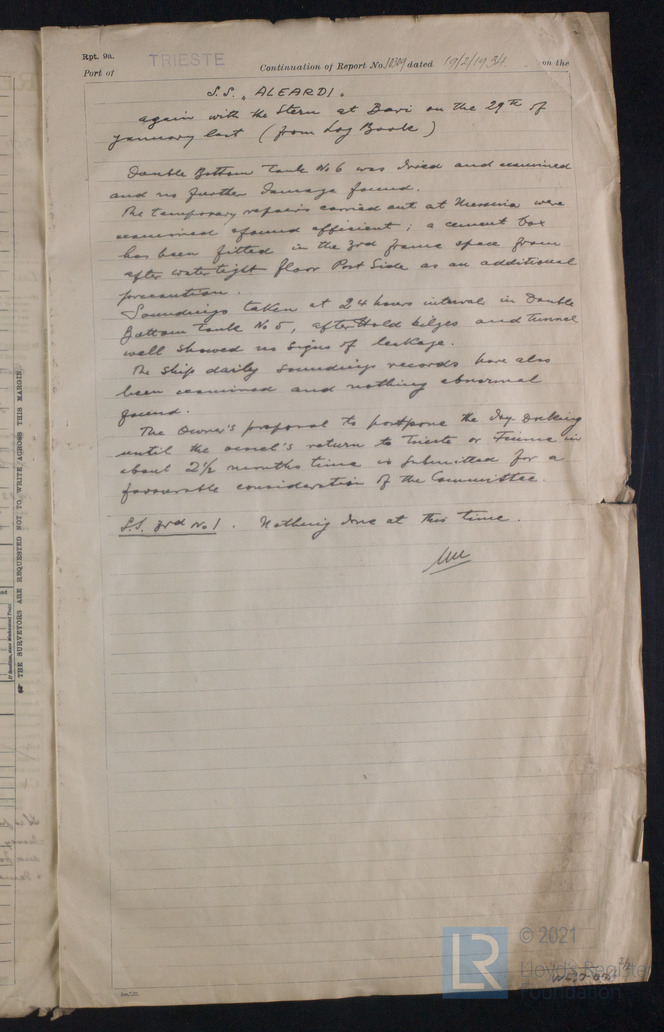 Rpt. 9a.
Port of TRIESTE Continuation of Report No. 10309 dated 19/2/1934 on the
S.S. "ALEARDI"
again with the Stern at Bari on the 29th of
January last (from Log Book)
Double Bottom Tank No 6 was dried and examined
and no further damage found.
The temporary repairs carried out at Messina were
examined & found efficient; a cement box
has been fitted in the 3rd frame space from
after watertight floor Port Side as an additional
precaution.
Soundings taken at 24 hours interval in Double
Bottom Tank No 5, after Hold bilges and tunnel
well showed no signs of leakage.
The Ship daily soundings records have also
been examined and nothing abnormal
found.
The Owner's proposal to postpone the Dry Docking
until the vessel's return to Trieste or Fiume in
about 2½ months time is submitted for a
favourable consideration of the Committee.
S.S. 3rd No 1. Nothing done at this time.
THE SURVEYORS ARE REQUESTED NOT TO WRITE ACROSS THIS MARGIN.
LR
© 2021
Lloyd's Register
Foundation